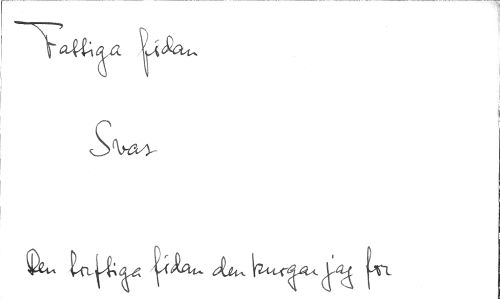 Fattiga sidan
Svar
Den torftiga sidan den kurgar jag for